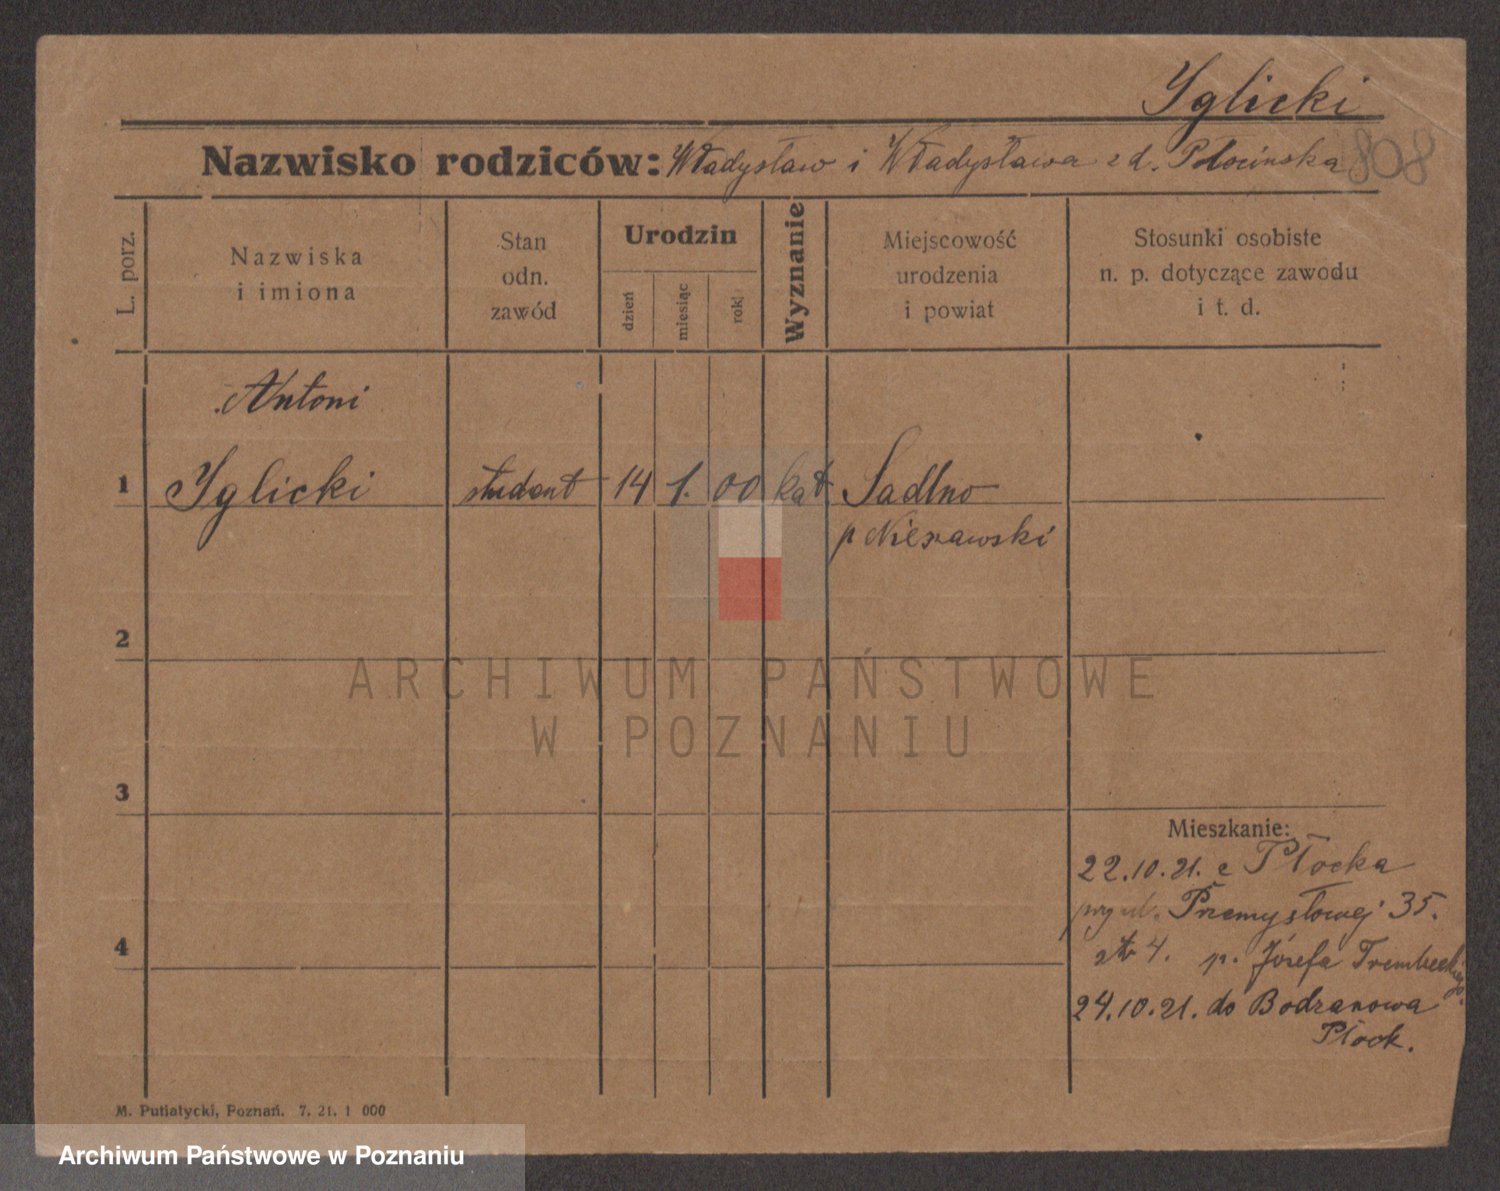 Yglicki
Nazwisko rodziców: Władysław i Władysława z d. Płocińska 808
L. porz.
Nazwiska
i imiona
Stan
odn.
zawód
Urodzin
dzień
miesiąc
rok
Wyznanie
Miejscowość
urodzenia
i powiat
Stosunki osobiste
n. p. dotyczące zawodu
i t. d.
Antoni
1 Yglicki student 14 1. 00 kat. Sadlno
p Nieszawski
2
ARCHIWUM PAŃSTWOWE
W POZNANIU
3
Mieszkanie:
22.10.21. z Płocka
przy ul. Przemysłowej 35.
4
4. p. Józefa Trembeckiego.
24.10.21. do Bodzanowa
Płock.
M. Putiatycki, Poznań. 7. 21. 1 000
Archiwum Państwowe w Poznaniu